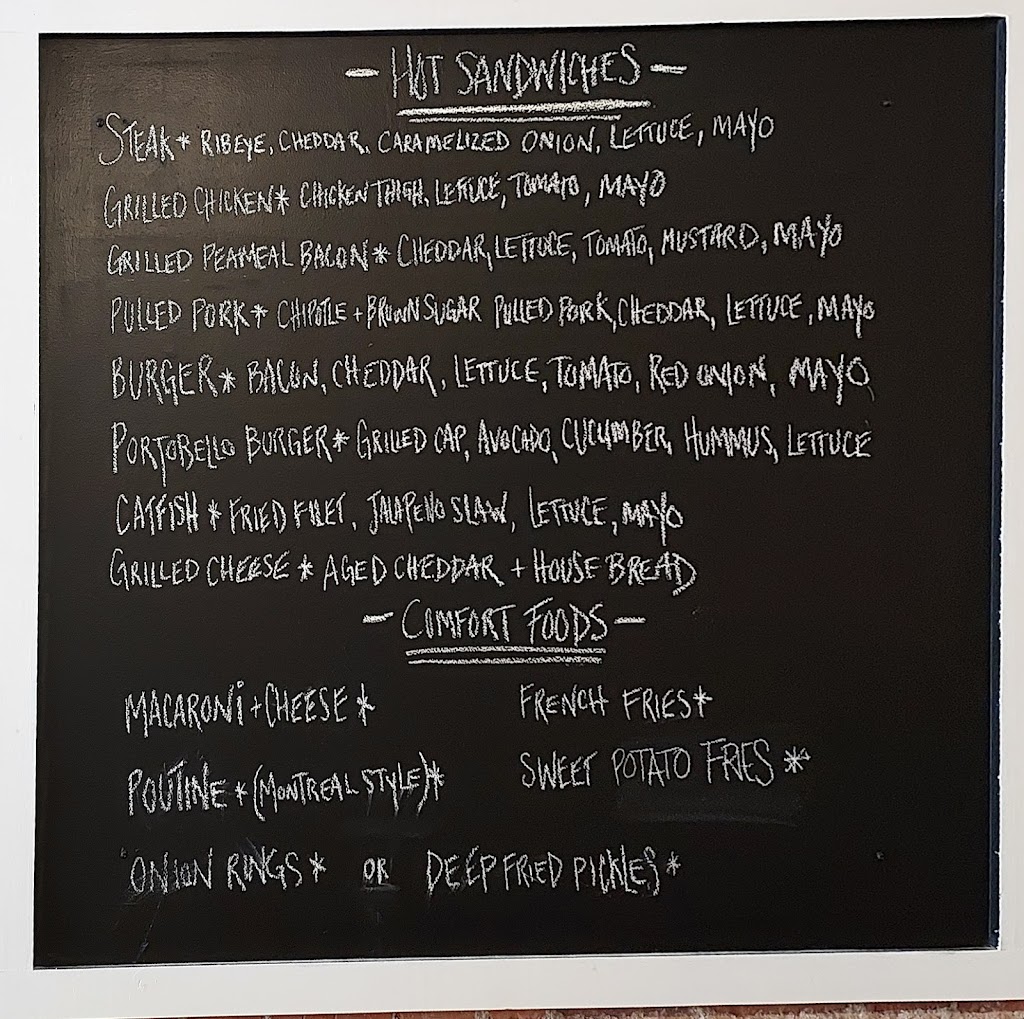 - HOT SANDWICHES -
STEAK* RIBEYE, CHEDDAR, CARAMELIZED ONION, LETTUCE, MAYO
GRILLED CHICKEN* CHICKEN THIGH, LETTUCE, TOMATO, MAYO
GRILLED PEAMEAL BACON* CHEDDAR, LETTUCE, TOMATO, MUSTARD, MAYO
PULLED PORK* CHIPOTLE + BROWN SUGAR PULLED PORK, CHEDDAR, LETTUCE, MAYO
BURGER* BACON, CHEDDAR, LETTUCE, TOMATO, RED ONION, MAYO
PORTOBELLO BURGER* GRILLED CAP, AVOCADO, CUCUMBER, HUMMUS, LETTUCE
CATFISH * FRIED FILET, JALAPENO SLAW, LETTUCE, MAYO
GRILLED CHEESE * AGED CHEDDAR + HOUSE BREAD
- COMFORT FOODS -
MACARONi + CHEESE * FRENCH FRIES*
POUTINE * (MONTREAL STYLE)* SWEET POTATO FRIES *
ONION RINGS * OR DEEP FRIED PICKLES *